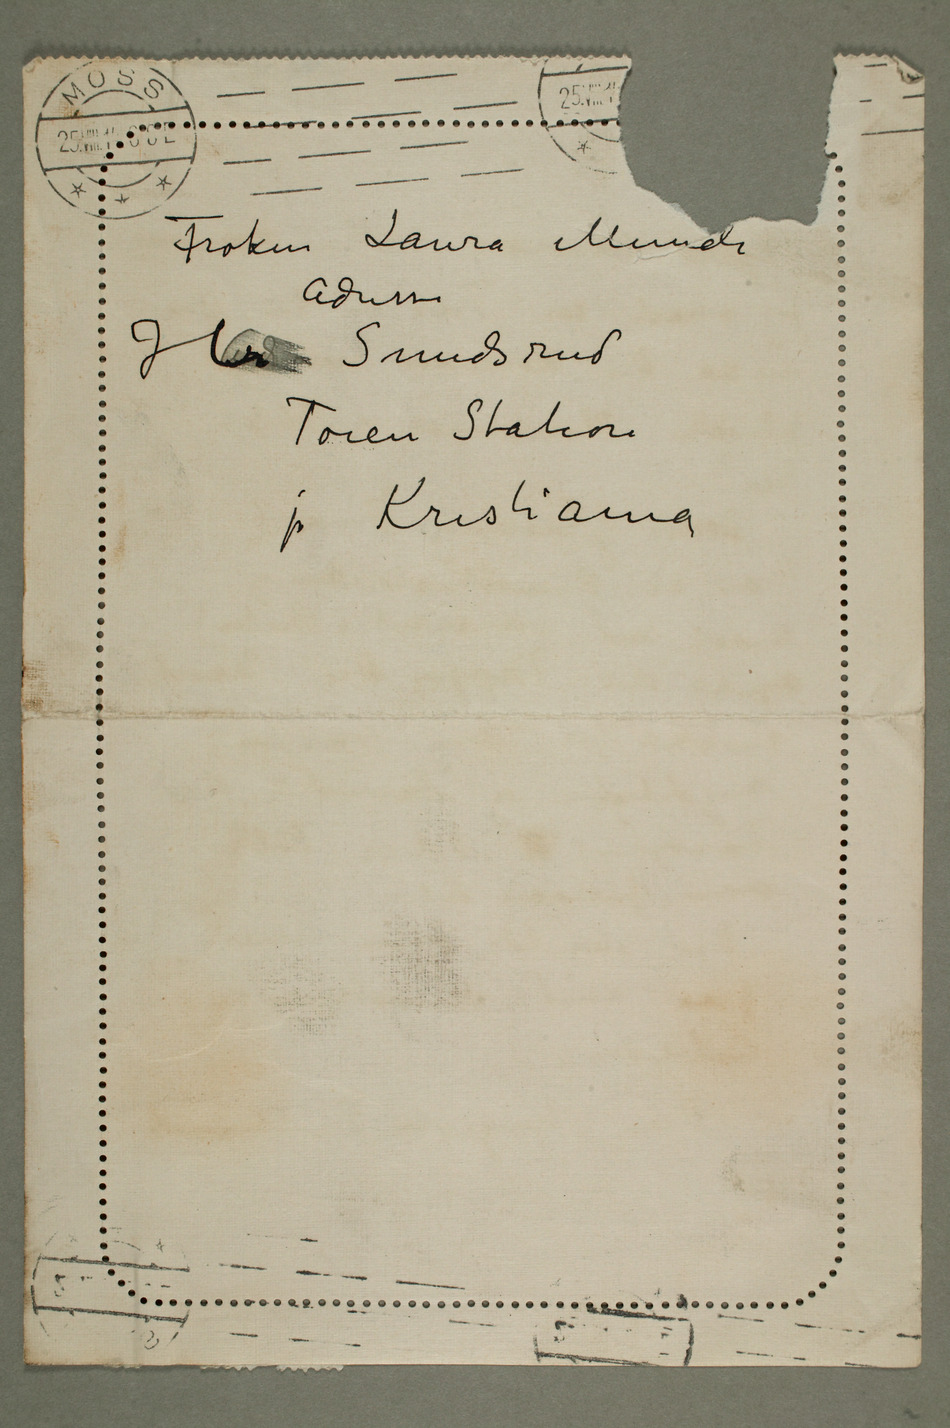 MOSS
25.VIII.1
25.VIII.1
Frøken Laura Munch
Adresse
J Sundsrud
Toien Station
pr Kristiania